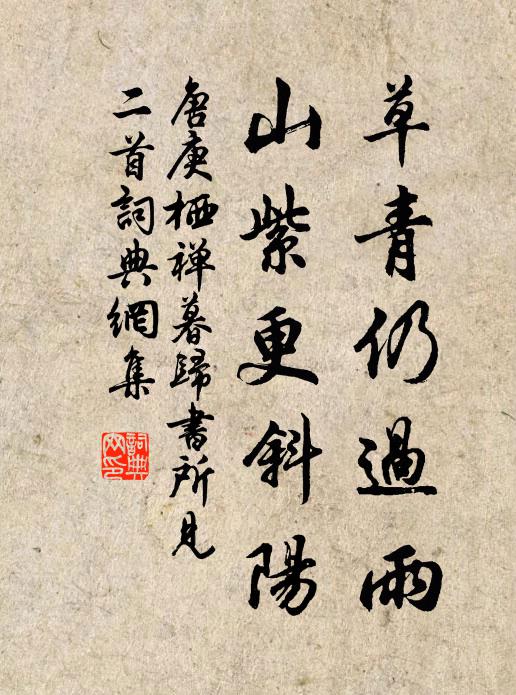 草青仍過雨
山紫更斜陽
唐庚栖禅暮歸書所見
二首詞典網集
詞典網印